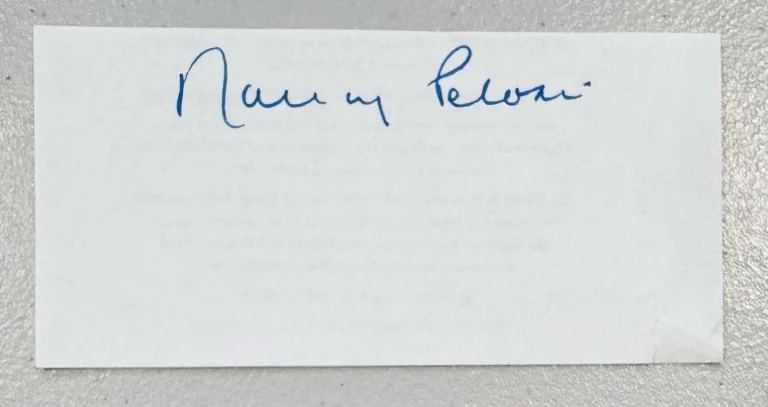 Nancy Pelosi